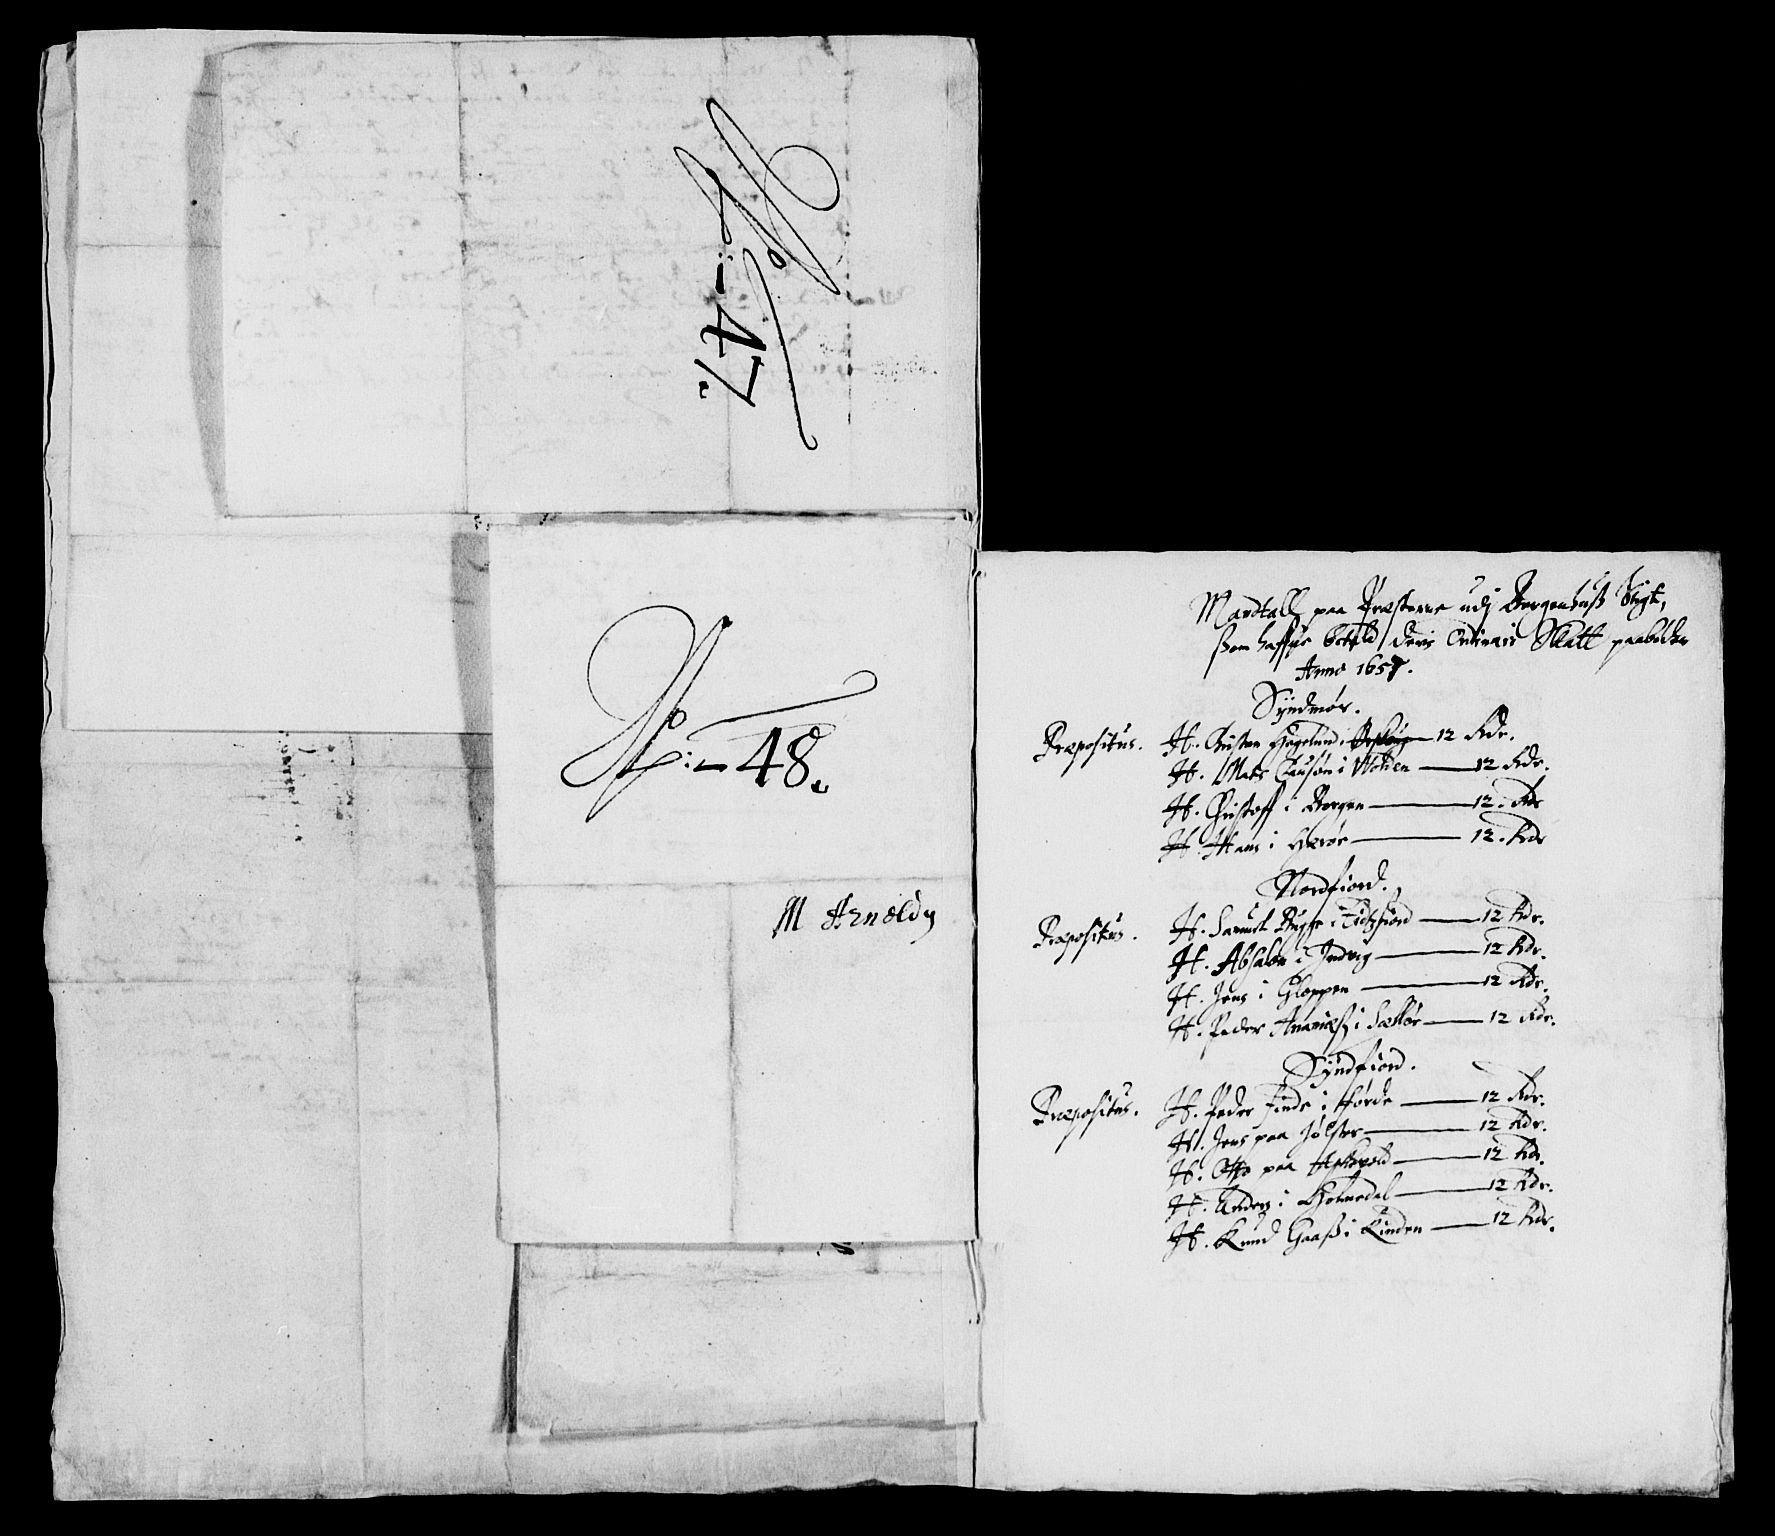 No:—47.
No:—48.
M Arnoldy
Mandtall paa Præsterne udj Bergenhuß Stigt,
ßom haffue betald deris Ordinari Skatt paabøden
Anno 1657.
Syndmør.
Præpositus. H. Christen Hagelund i 12 Rdr.
H. Mats Clausøn i Wolden — 12 Rdr.
H. Christoff i Borgen — 12. Rdr
H. Hans i Herøe — 12. Rdr
Nordfiord.
Præpositus. H. Samuel Bugge i Eidtzfiord — 12 Rdr.
H. Absalon i Indvig — 12 Rdr.
H. Jens i Gloppen — 12 Rdr.
H. Peder Ananiæß i Sælløe — 12 Rdr.
Syndfiord.
Præpositus. H. Peder Finde i Førde — 12 Rdr.
H. Jens paa Jølster — 12 Rdr.
H. Otto paa Askevold — 12 Rdr.
H. Anders i Holmedal — 12 Rdr.
H. Knud Gaaß i Kinden — 12 Rdr.